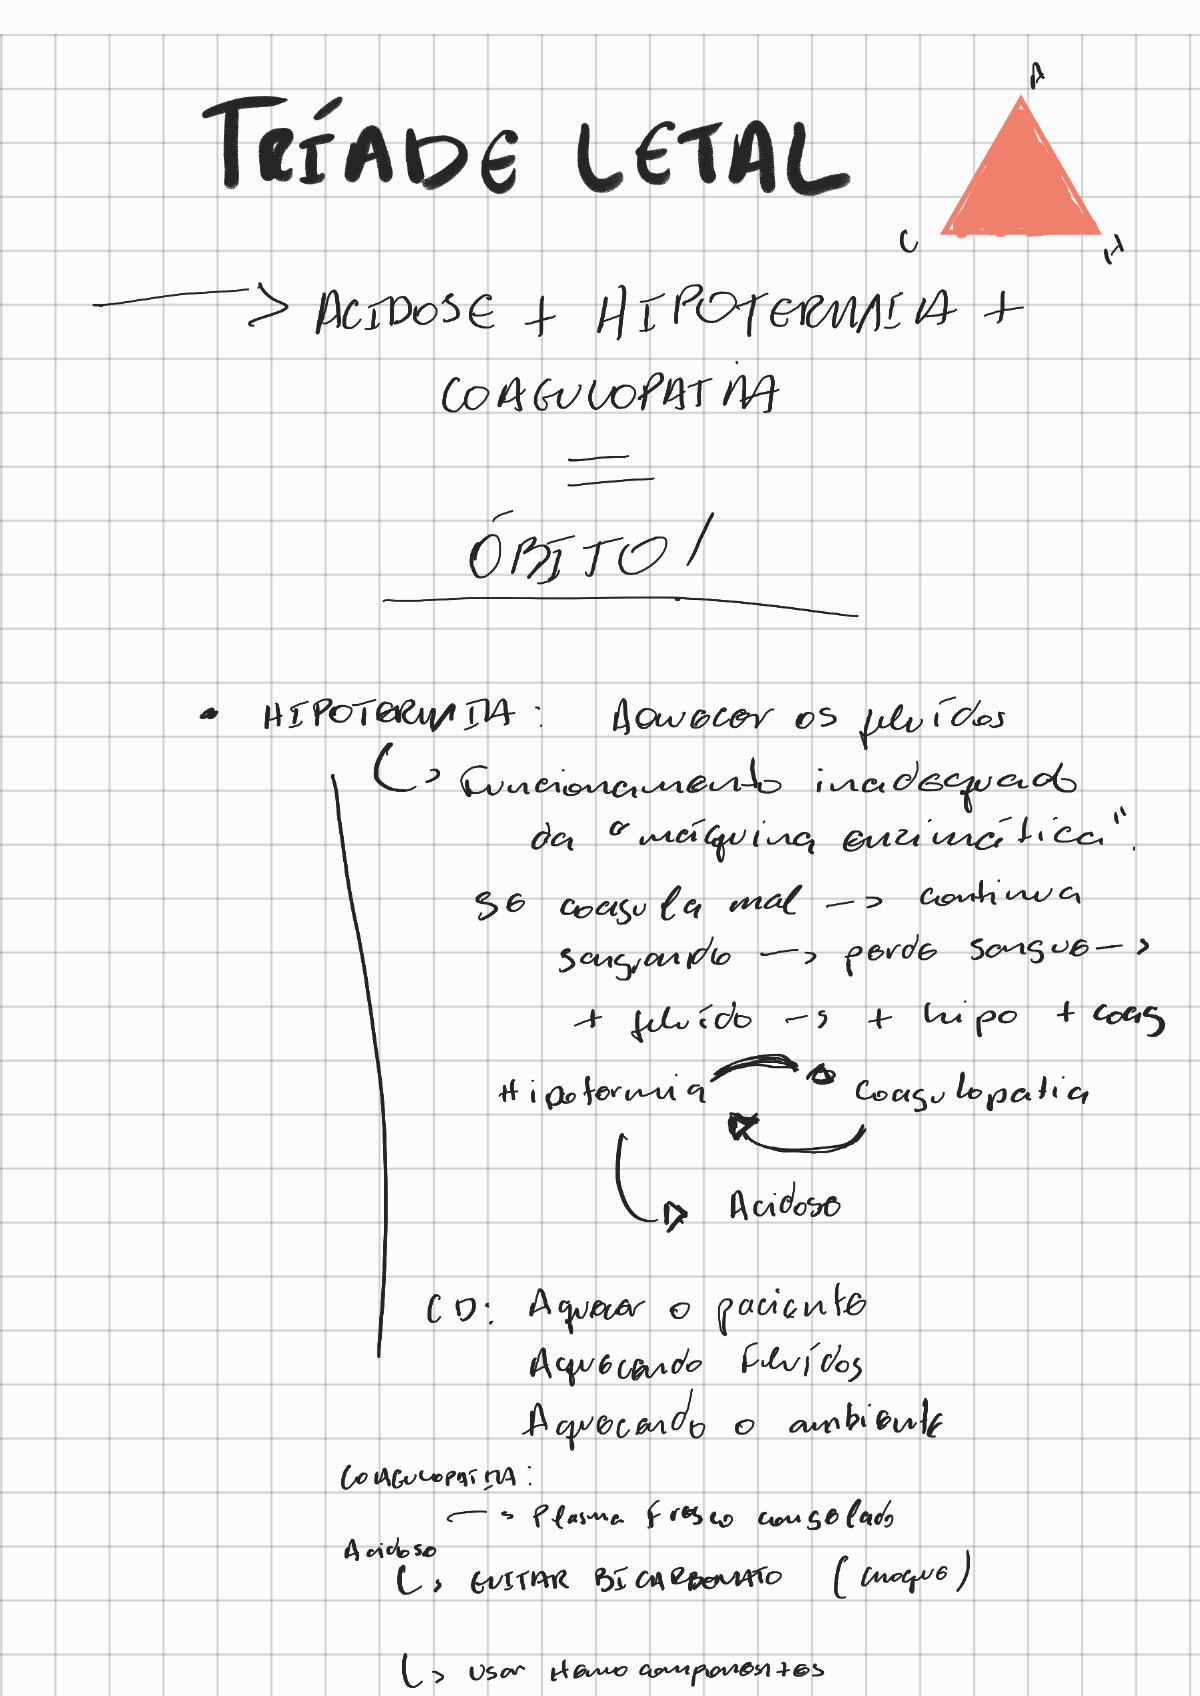 TRÍADE LETAL
A
C
H
→ ACIDOSE + HIPOTERMIA +
COAGULOPATIA
=
ÓBITO!
• HIPOTERMIA: Aquecer os fluídos
↳ Funcionamento inadequado
da "máquina enzimática".
se coagula mal -> continua
sangrando -> perde sangue ->
+ fluído -> + hipo + coag
Hipotermia → Coagulopatia
←
↳ Acidose
CD: Aquecer o paciente
Aquecendo Fluídos
Aquecendo o ambiente
COAGULOPATIA:
-> Plasma fresco congelado
Acidose
↳ EVITAR BICARBONATO (choque)
↳ usar Hemocomponentes